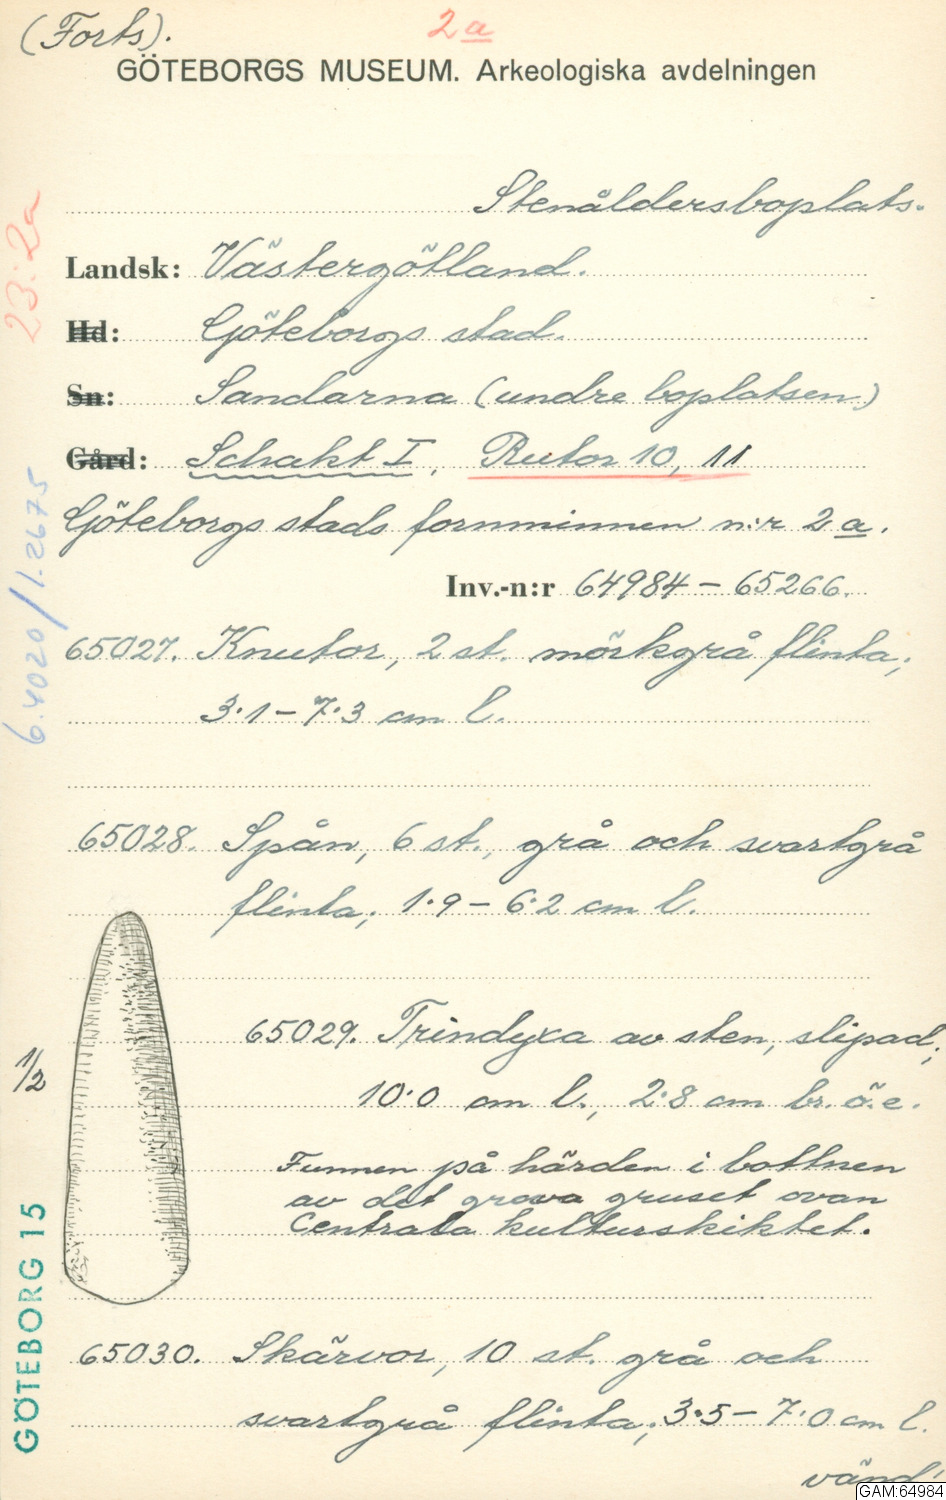 (Forts).
2a
GÖTEBORGS MUSEUM. Arkeologiska avdelningen
Stenåldersboplats.
Landsk: Västergötland.
Hd: Göteborgs stad.
Sn: Sandarna (undre boplatsen)
Gård: Schakt I, Rutor 10, 11
Göteborgs stads fornminnen n:r 2a.
Inv.-n:r 64984 – 65266.
65027. Knutor, 2 st. mörkgrå flinta;
3·1 – 7·3 cm l.
65028. Spån, 6 st., grå och svartgrå
flinta; 1·9 – 6·2 cm l.
65029. Trindyxa av sten, slipad;
10·0 cm l., 2·8 cm br. ö. e.
1/2
Funnen på härden i bottnen
av det grova gruset ovan
Centrala kulturskiktet.
65030. Skärvor, 10 st. grå och
svartgrå flinta; 3·5 – 7·0 cm l.
vänd!
23:2a
6.4020/1.2675
GÖTEBORG 15
GAM:64984